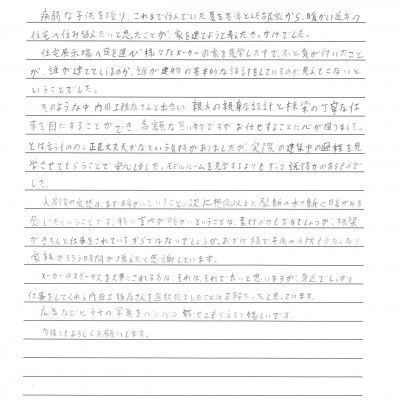 病弱な子供を授り、これまで住んでいた夏を基準とした民家から、暖かい近年の
住宅へ住み替えたいと思ったことが、家を建てようと考えたきっかけでした。
住宅展示場へ足を運び様々なメーカーの家を見学した中で、ふと気が付いたこと
が、誰が建てているのか、誰が建物の基本的な設計をしているのか見えてこないと
いうことでした。
そのような中 内田工務店さんと出会い、親方の親身な設計と棟梁の丁寧な仕
事を目にすることができ、高額な買い物ですがお任せすることに心が固りました。
とは言うものの、正直大丈夫かなという気持がありましたが、実際の建築中の過程を見
学させてもらうことで安心しました。モデルルームを見学するよりもずっと説得力のあるもので
した。
入居後の感想は、まず暖かいということ。次に想像以上に壁面の木の節に暖かみを
感じたということです。特に室内が暖かいということは、素材の力もあるでしょうが、棟梁
がきちんと仕事をされているからではないでしょうか。おかげ様で子供の入院も少なくなり
家族が写う時間が増えたと感謝しています。
メーカーのステータスを大事にされる方は、それは、それで良いと思いますが、身近でしっかり
仕事をしてくれる内田工務店さんを選択したことは正解だったと思っています。
広告などにうちの写真をバンバン載せてもらえると嬉しいです。
今後ともよろしくお願いします。